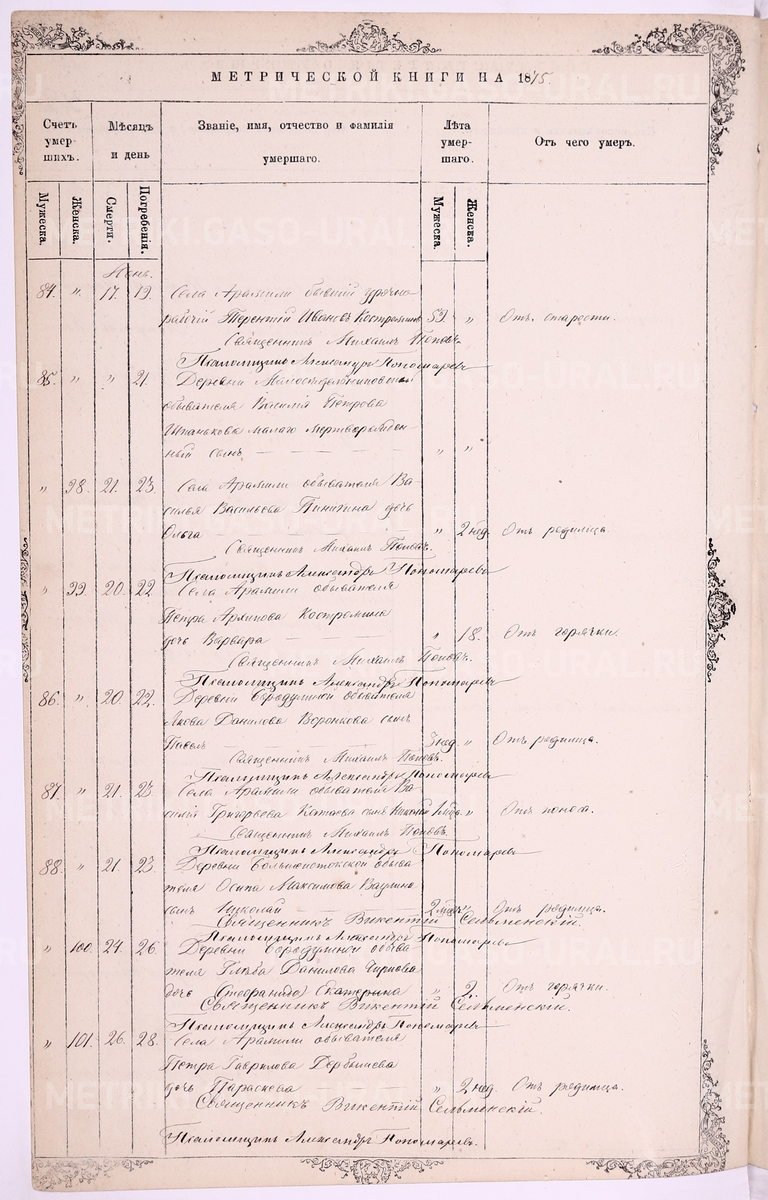 МЕТРИЧЕСКОЙ КНИГИ НА 1875.
Счетъ умер-шихъ.
Мѣсяцъ и день
Званіе, имя, отчество и фамилія умершаго.
Лѣта умер-шаго.
Отъ чего умеръ.
Мужеска. Женска. Смерти. Погребенія. Мужеска. Женска.
84. " 17. 19. Села Арамили бывшій урочно
рабчій Терентій Ивановъ Костроминъ 59. " Отъ старости.
Священникъ Михаилъ Поповъ.
Псаломщикъ Александръ Пономаревъ
85. " " 21. Деревни
обывателя Василія Петрова
Шпанькова малаго мертворожден-
ный сынъ " "
" 98. 21. 23. Села Арамили обывателя Ва-
силья Васильева Пинигина дочь
Ольга " 2 нед. Отъ родимца.
Священникъ Михаилъ Поповъ.
Псаломщикъ Александръ Пономаревъ
" 99. 20. 22. Села Арамили обывателя
Петра Архипова Костромина
дочь Варвара " 18. Отъ горячки.
Священникъ Михаилъ Поповъ.
Псаломщикъ Александръ Пономаревъ
86. " 20. 22. Деревни Бородулиной обывателя
Якова Данилова Воронкова сынъ
Павелъ 3 нед. " Отъ родимца.
Священникъ Михаилъ Поповъ.
Псаломщикъ Александръ Пономаревъ
87. " 21. 23. Села Арамили обывателя Ва-
силія Григорьева Катаева сынъ " Отъ поноса.
Священникъ Михаилъ Поповъ.
Псаломщикъ Александръ Пономаревъ
88. " 21. 23. Деревни Большеистокской обыва-
теля Осипа Максимова
сынъ Николай " Отъ родимца.
Священникъ Викентій Сельменскій.
Псаломщикъ Александръ Пономаревъ
" 100. 24. 26. Деревни Бородулиной обыва-
теля Глѣба Данилова
дочь Екатерина " 2. Отъ горячки.
Священникъ Викентій Сельменскій.
Псаломщикъ Александръ Пономаревъ
" 101. 26. 28. Села Арамили обывателя
Петра Гаврилова Дербышева
дочь Параскева " 2 нед. Отъ родимца.
Священникъ Викентій Сельменскій.
Псаломщикъ Александръ Пономаревъ.